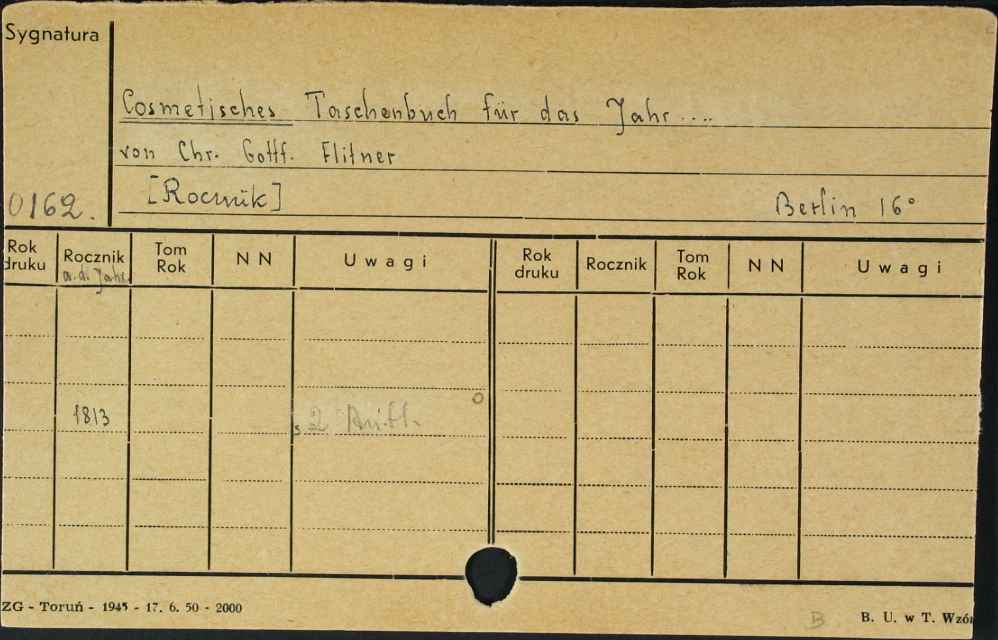 Sygnatura
Cosmetisches Taschenbuch für das Jahr....
von Chr. Gottf. Flitner
[Rocznik]
0162.
Berlin 16°
Rok druku Rocznik Tom Rok NN Uwagi Rok druku Rocznik Tom Rok NN Uwagi
a. d. Jahr.
1813 2 Aufl.
ZG - Toruń - 1945 - 17. 6. 50 - 2000
B
B. U. w T. Wzór